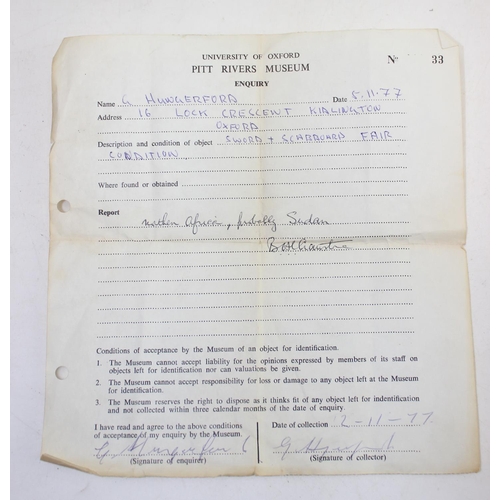 UNIVERSITY OF OXFORD
PITT RIVERS MUSEUM
No 33
ENQUIRY
Name G HUNGERFORD Date 5.11.77
Address 16 LOCK CRESCENT KIDLINGTON
OXFORD
Description and condition of object SWORD + SCABBARD FAIR
CONDITION
Where found or obtained
Report
northern Africa, probably Sudan
Conditions of acceptance by the Museum of an object for identification.
1. The Museum cannot accept liability for the opinions expressed by members of its staff on
objects left for identification nor can valuations be given.
2. The Museum cannot accept responsibility for loss or damage to any object left at the Museum
for identification.
3. The Museum reserves the right to dispose as it thinks fit of any object left for indentification
and not collected within three calendar months of the date of enquiry.
I have read and agree to the above conditions
of acceptance of my enquiry by the Museum.
G Hungerford
(Signature of enquirer)
Date of collection 2-11-77
(Signature of collector)